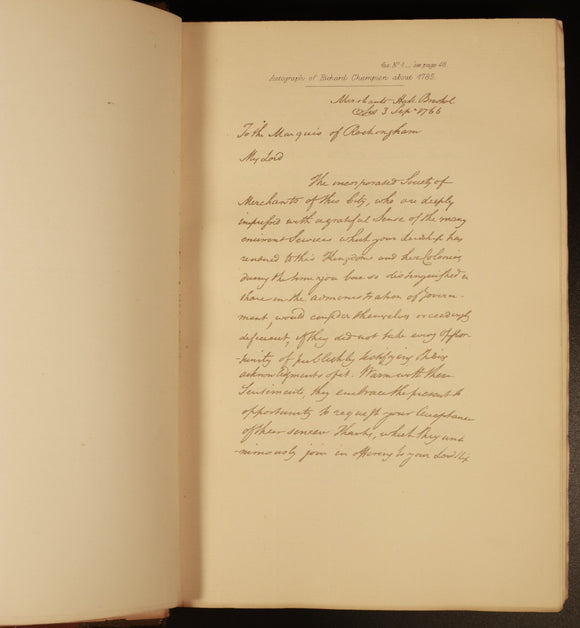 Fac. No 1 ... see page 48
Autograph of Richard Champion about 1765.
Merchants Hall Bristol
3 Sepr 1766
To the Marquis of Rockingham
My Lord
The incorporated Society of
Merchants of this City, who are deeply
impressed with a grateful Sense of the many
eminent Services which your Lordship has
rendered to this Kingdom and her Colonies
during the time you bore so distinguished a
share in the administration of Govern-
ment, would consider themselves exceedingly
deficient, if they did not take every Oppor-
-tunity of publickly testifying their
acknowledgments of it. Warm with these
Sentiments, they embrace the present
opportunity to request your Acceptance
of their sincere Thanks, which they una-
nimously join in offering to your Lordship